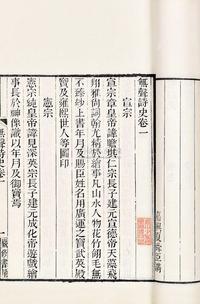 無聲詩史卷一
宣宗
宣宗章皇帝諱瞻基仁宗長子建元宣德帝天藻飛
翔雅尚詞翰尤精於繪事凡山水人物花竹翎毛無
不臻妙上書年月及賜臣姓名用廣運之寶武英殿
寶及雍熙世人等圖印
憲宗
憲宗純皇帝諱見深英宗長子建元成化帝遊戲繪
事長於神像識以年月及御寶焉
無聲詩史卷一